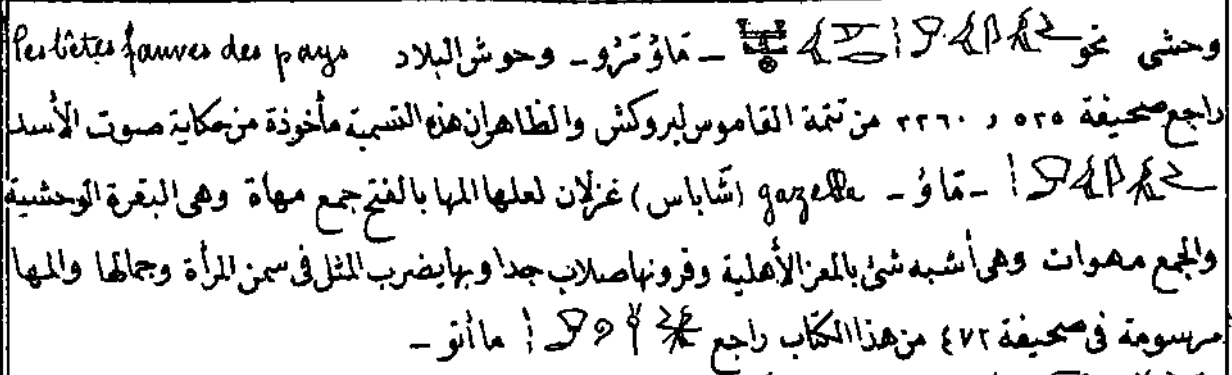 وحشى نحو ـ مَاؤُمَرُو ـ وحوش البلاد les bêtes fauves des pays
راجع صحيفة ٥٢٥ و ٢٢٦٠ من تتمة القاموس لبروكش والظاهر ان هذه التسمية مأخوذة من حكاية صوت الأسد
ـ مَاؤُ ـ gazelle (شَاباس) غزلان لعلها المها بالفتح جمع مهاة وهى البقرة الوحشية
والجمع مهوات وهى أشبه شئ بالمعز الأهلية وقرونها صلاب جدا وبها يضرب المثل فى سمن المرأة وجمالها والمها
مرسومة فى صحيفة ٤٧٢ من هذا الكتاب راجع ماأنو ـ